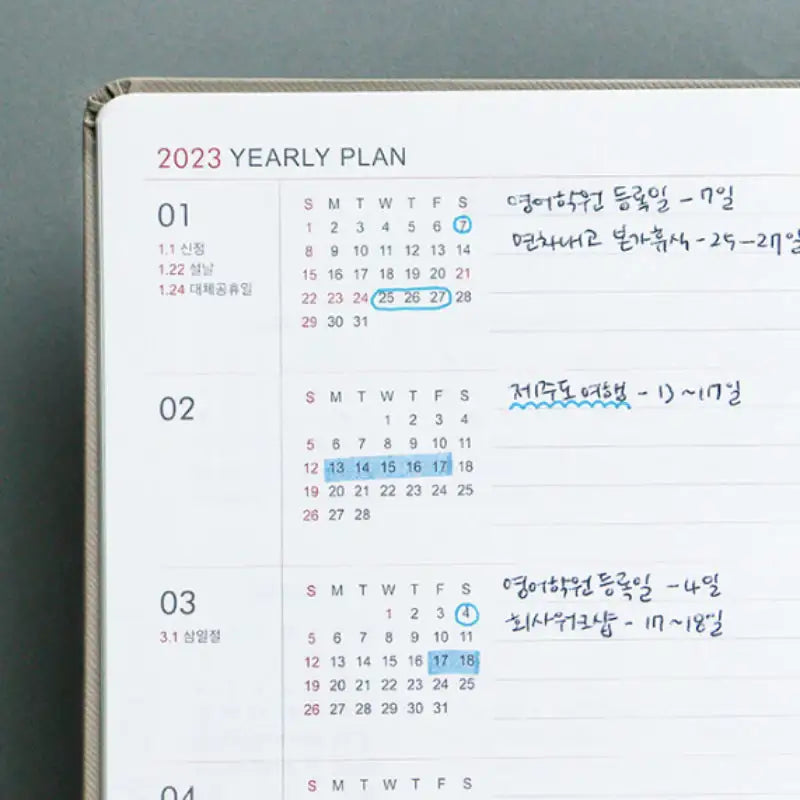 2023 YEARLY PLAN
01
1.1 신정
1.22 설날
1.24 대체공휴일
S M T W T F S
1 2 3 4 5 6 7
8 9 10 11 12 13 14
15 16 17 18 19 20 21
22 23 24 25 26 27 28
29 30 31
영어학원 등록일 - 7일
연차내고 본가휴식 - 25-27일
02
S M T W T F S
1 2 3 4
5 6 7 8 9 10 11
12 13 14 15 16 17 18
19 20 21 22 23 24 25
26 27 28
제주도여행 - 13 ~17일
03
3.1 삼일절
S M T W T F S
1 2 3 4
5 6 7 8 9 10 11
12 13 14 15 16 17 18
19 20 21 22 23 24 25
26 27 28 29 30 31
영어학원등록일 - 4일
회사워크샵 - 17 ~18일
04
S M T W T F S